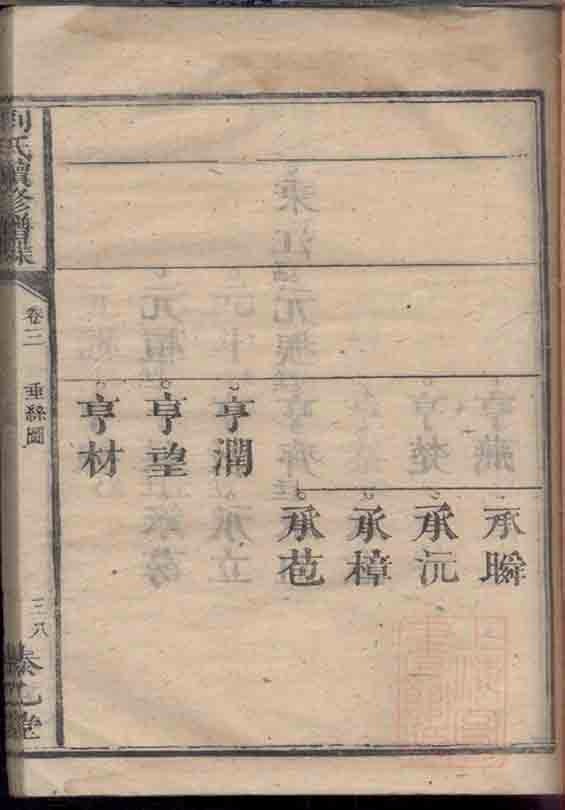 承瞬
承沅
承樟
承苞
亨潤
亨望
亨材
劉氏續修譜牒
卷三 垂絲圖
三八
藜乙堂